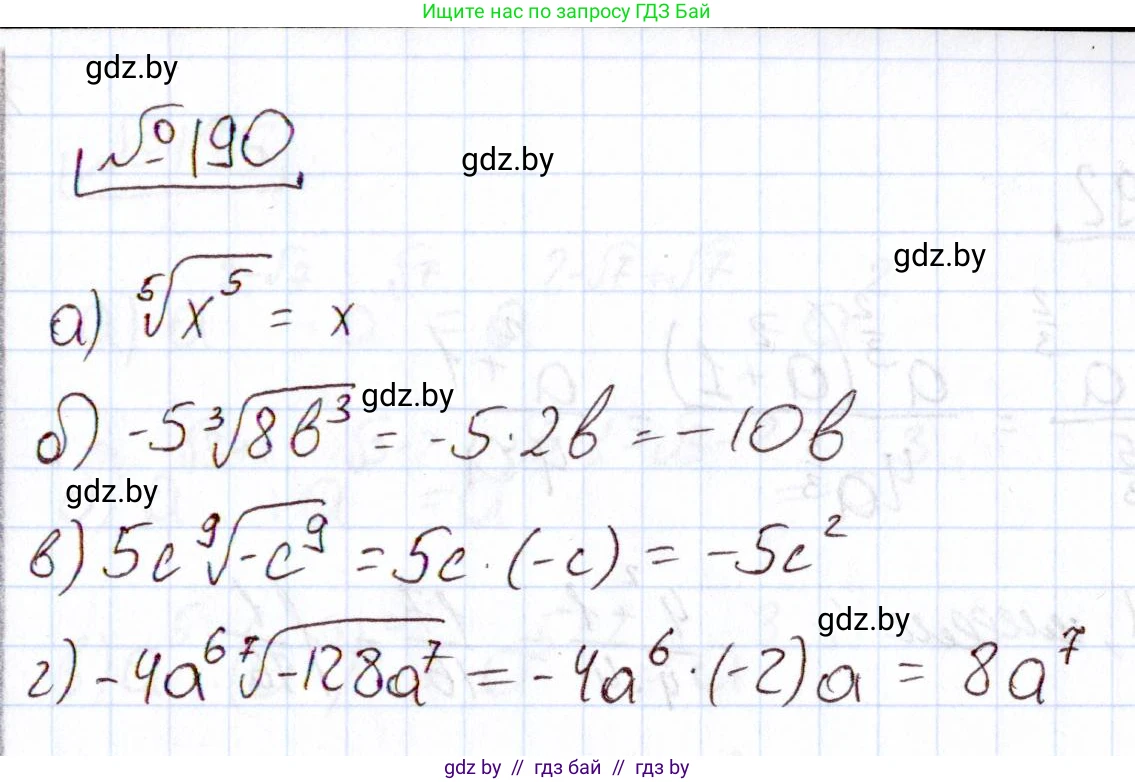 Ищите нас по запросу ГДЗ Бай
gdz.by
№190
gdz.by
gdz.by
а) ⁵√x⁵ = x
gdz.by
б) -5 ³√8в³ = -5·2в = -10в
gdz.by
в) 5c ⁹√-c⁹ = 5c·(-c) = -5c²
gdz.by
г) -4a⁶ ⁷√-128a⁷ = -4a⁶·(-2)a = 8a⁷
gdz by // гдз бай // гдз by